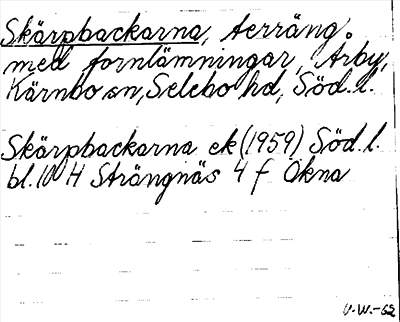 Skärpbackarna, terräng
med fornlämningar, Årby,
Kärnbo sn, Selebo hd, Söd. l.
Skärpbackarna ek (1959) Söd. l.
bl. 10 H Strängnäs 4 f Åkna
V.W.-62